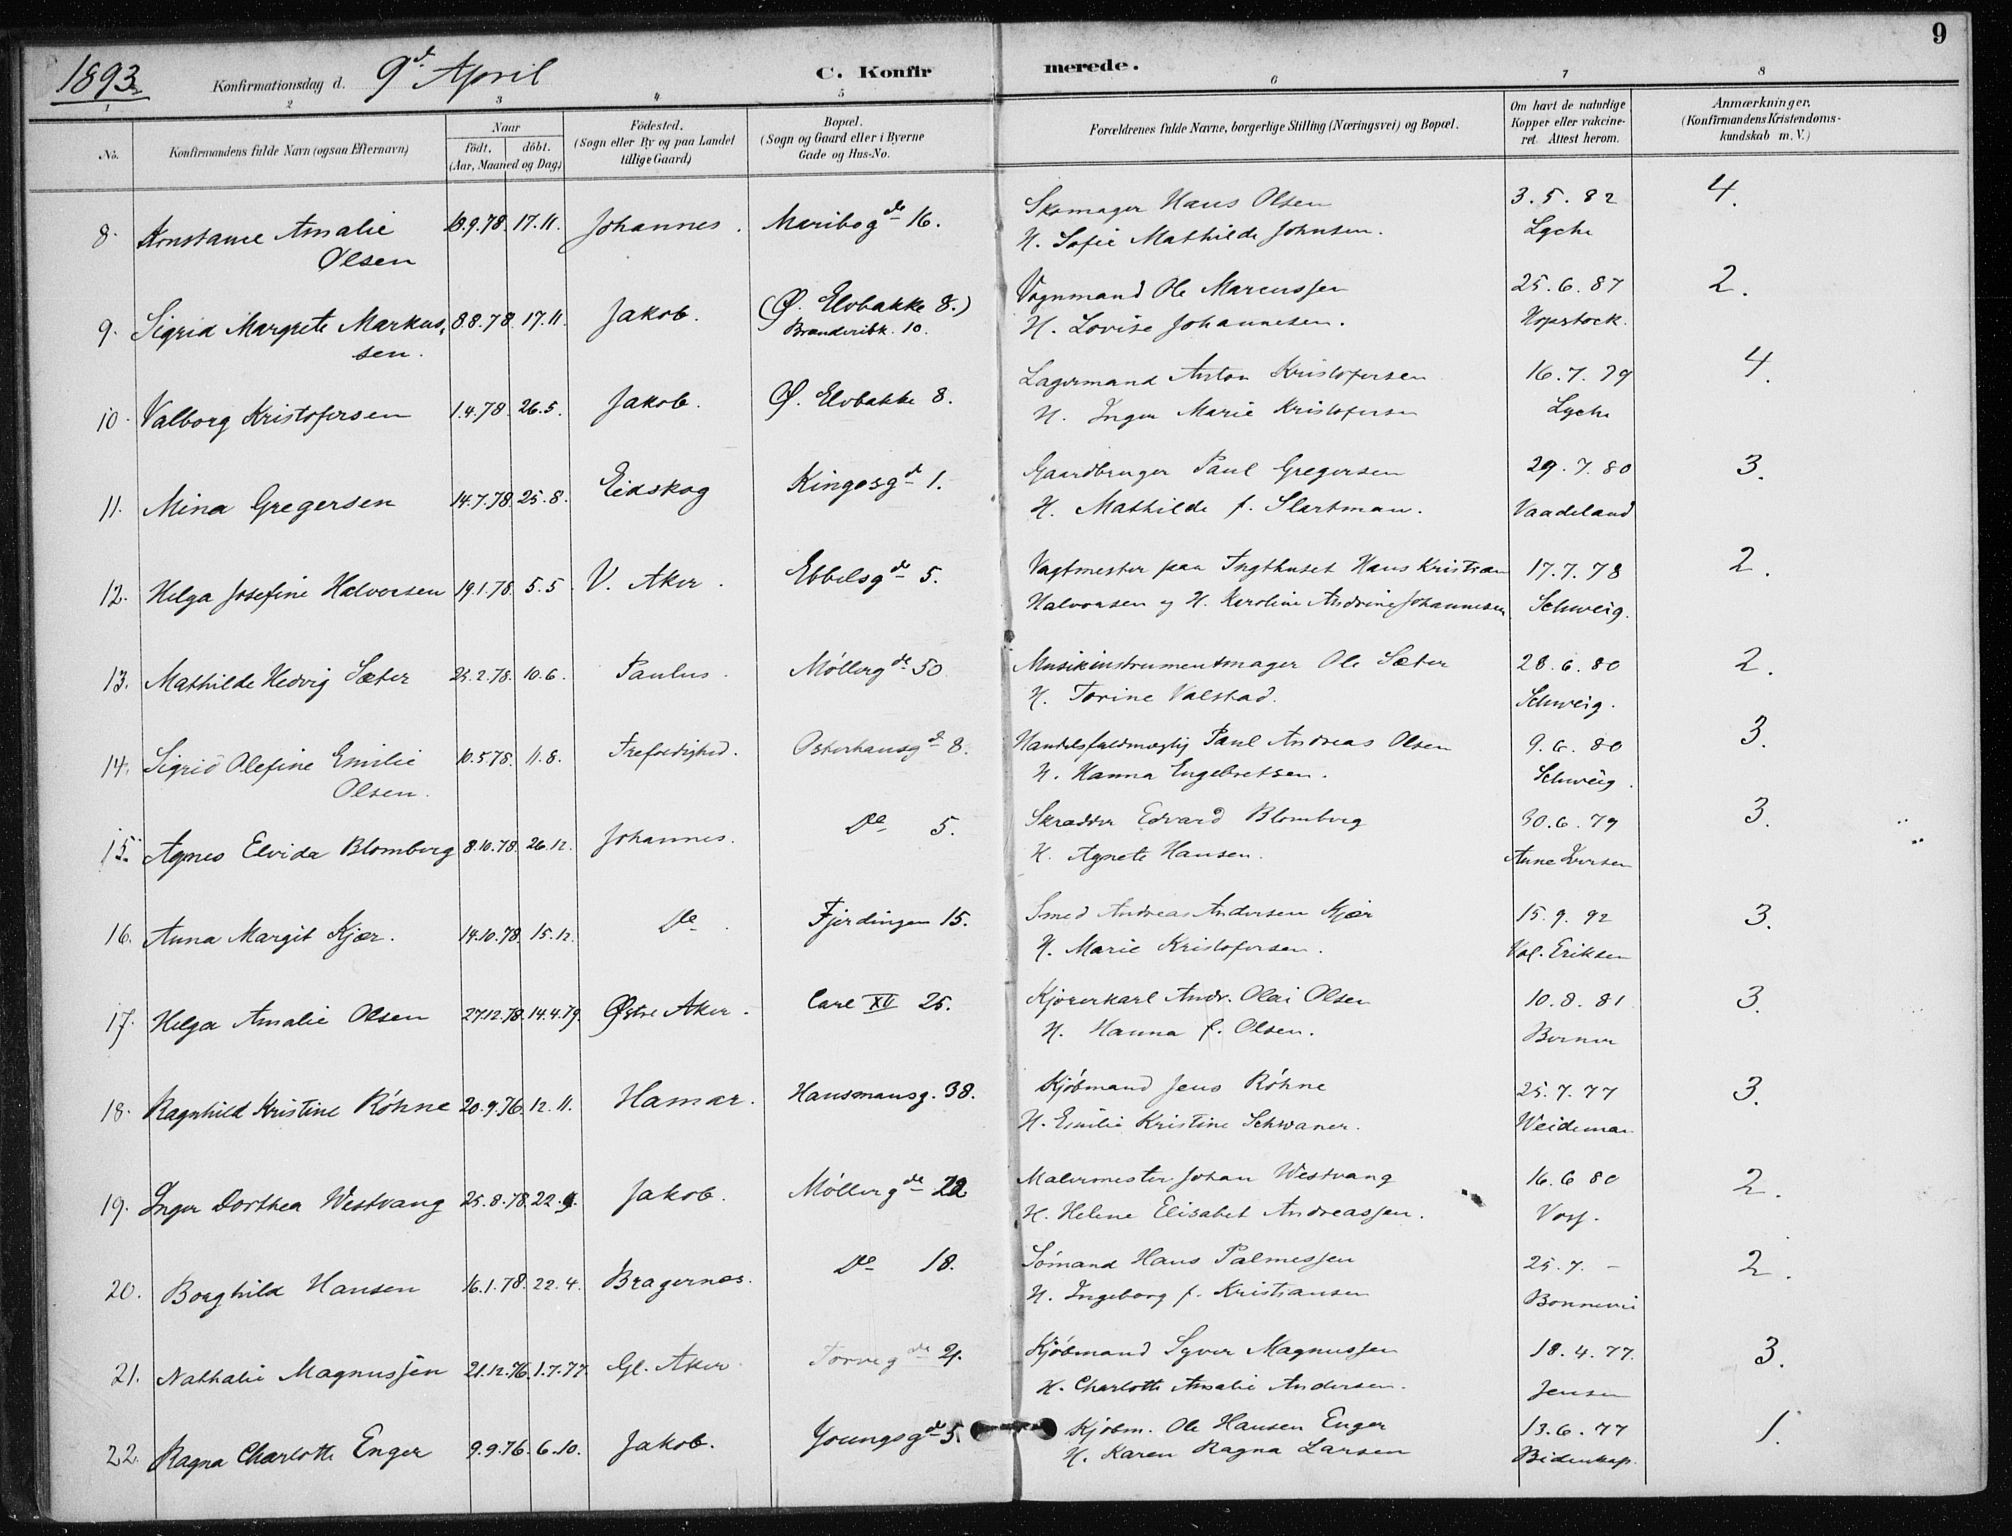 9
1893. Konfirmationsdag d. 9de April C. Konfirmerede.
1 2 3 4 5 6 7 8
No. Konfirmandens fulde Navn (ogsaa Efternavn) Naar født. døbt. (Aar, Maaned og Dag) Fødested. (Sogn eller By og paa Landet tillige Gaard) Bopæl. (Sogn og Gaard eller i Byerne Gade og Hus-No. Forældrenes fulde Navne, borgerlige Stilling (Næringsvei) og Bopæl. Om havt de naturlige Kopper eller vakcineret. Attest herom. Anmærkninger. (Konfirmandens Kristendomskundskab m. V.)
8. Konstance Amalie 18.9.78. 17.11. Johannes. Maribogde 16. Skomager Hans Olsen 3.5.82 4.
Olsen H. Sofie Mathilde Johnsen. Lyche
9. Sigrid Margrete Markus- 8.8.78. 17.11. Jakob. (Ø. Elvbakke 8.) Vognmand Ole Marcussen 25.6.87 2.
sen. Branderibk. 10. H. Lovise Johannesen. Hopstock.
10. Valborg Kristofersen 1.4.78. 26.5. Jakob. Ø. Elvbakke 8. Lagermand Anton Kristofersen 16.7.79 4.
H. Inger Marie Kristofersen Lyche
11. Mina Gregersen 14.7.78. 25.8. Eidskog Kingosgd 1. Gaardbruger Paul Gregersen 29.7.80 3.
H. Mathilde f. Slartman. Vaadeland
12. Helga Josefine Halvorsen 19.1.78. 5.5. V. Aker. Ebbelsgde 5. Vagtmester paa Tugthuset Hans Kristian 17.7.78 2.
Halvorsen og H. Karoline Andrine Johannesen Schweig.
13. Mathilde Hedvig Sæter 25.2.78. 10.6. Paulus. Møllergde 50 Musikinstrumentmager Ole Sæter 28.6.80 2.
H. Torine Valstad. Schweig.
14. Sigrid Olefine Emilie 10.5.78. 11.8. Trefoldighed. Osterhausgd 8. Handelsfuldmægtig Paul Andreas Olsen 9.6.80 3.
Olsen. H. Hanna Engebretsen. Schweig.
15. Agnes Elvida Blomberg 8.10.78. 26.12. Johannes. Do 5. Skrædder Edvard Blomberg 30.6.79 3.
H. Agnete Hansen. Anne Iversen
16. Anna Margit Kjær. 14.10.78. 15.12. Do. Fjerdingen 15. Smed Andreas Andersen Kjær 15.9.92 3.
H. Marie Kristofersen. Val. Eriksen
17. Helga Amalie Olsen 27.12.78. 14.4.79. Østre Aker. Carl XII 25. Kjørerkarl Andr. Olai Olsen 10.8.81 3.
H. Hanna f. Olsen. Berner
18. Ragnhild Kristine Røhne 20.9.76. 12.11. Hamar. Hausmansg. 38. Kjøbmand Jens Røhne 25.7.77 3.
H. Emilie Kristine Schwaner. Weideman
19. Inger Dorthea Westvang 25.8.78. 22.9. Jakob. Møllergde 22 Malermester Johan Westvang 16.6.80 2.
H. Helene Elisabet Andreassen. Voss.
20. Borghild Hansen 16.1.78. 22.4. Bragernes. Do 18. Sømand Hans Palmessen 25.7. – 2.
H. Ingeborg f. Kristiansen Bonnevie
21. Nathalie Magnussen 21.12.76. 1.7.77. Gl. Aker Torvegde 21. Kjøbmand Syver Magnussen 18.4.77. 3.
H. Charlotte Amalie Andersen. Jensen
22. Ragna Charlotte Enger 9.9.76. 6.10. Jakob. Youngsgde 5. Kjøbm. Ole Hansen Enger 13.6.77 1.
H. Karen Ragna Larsen Bidenkap.